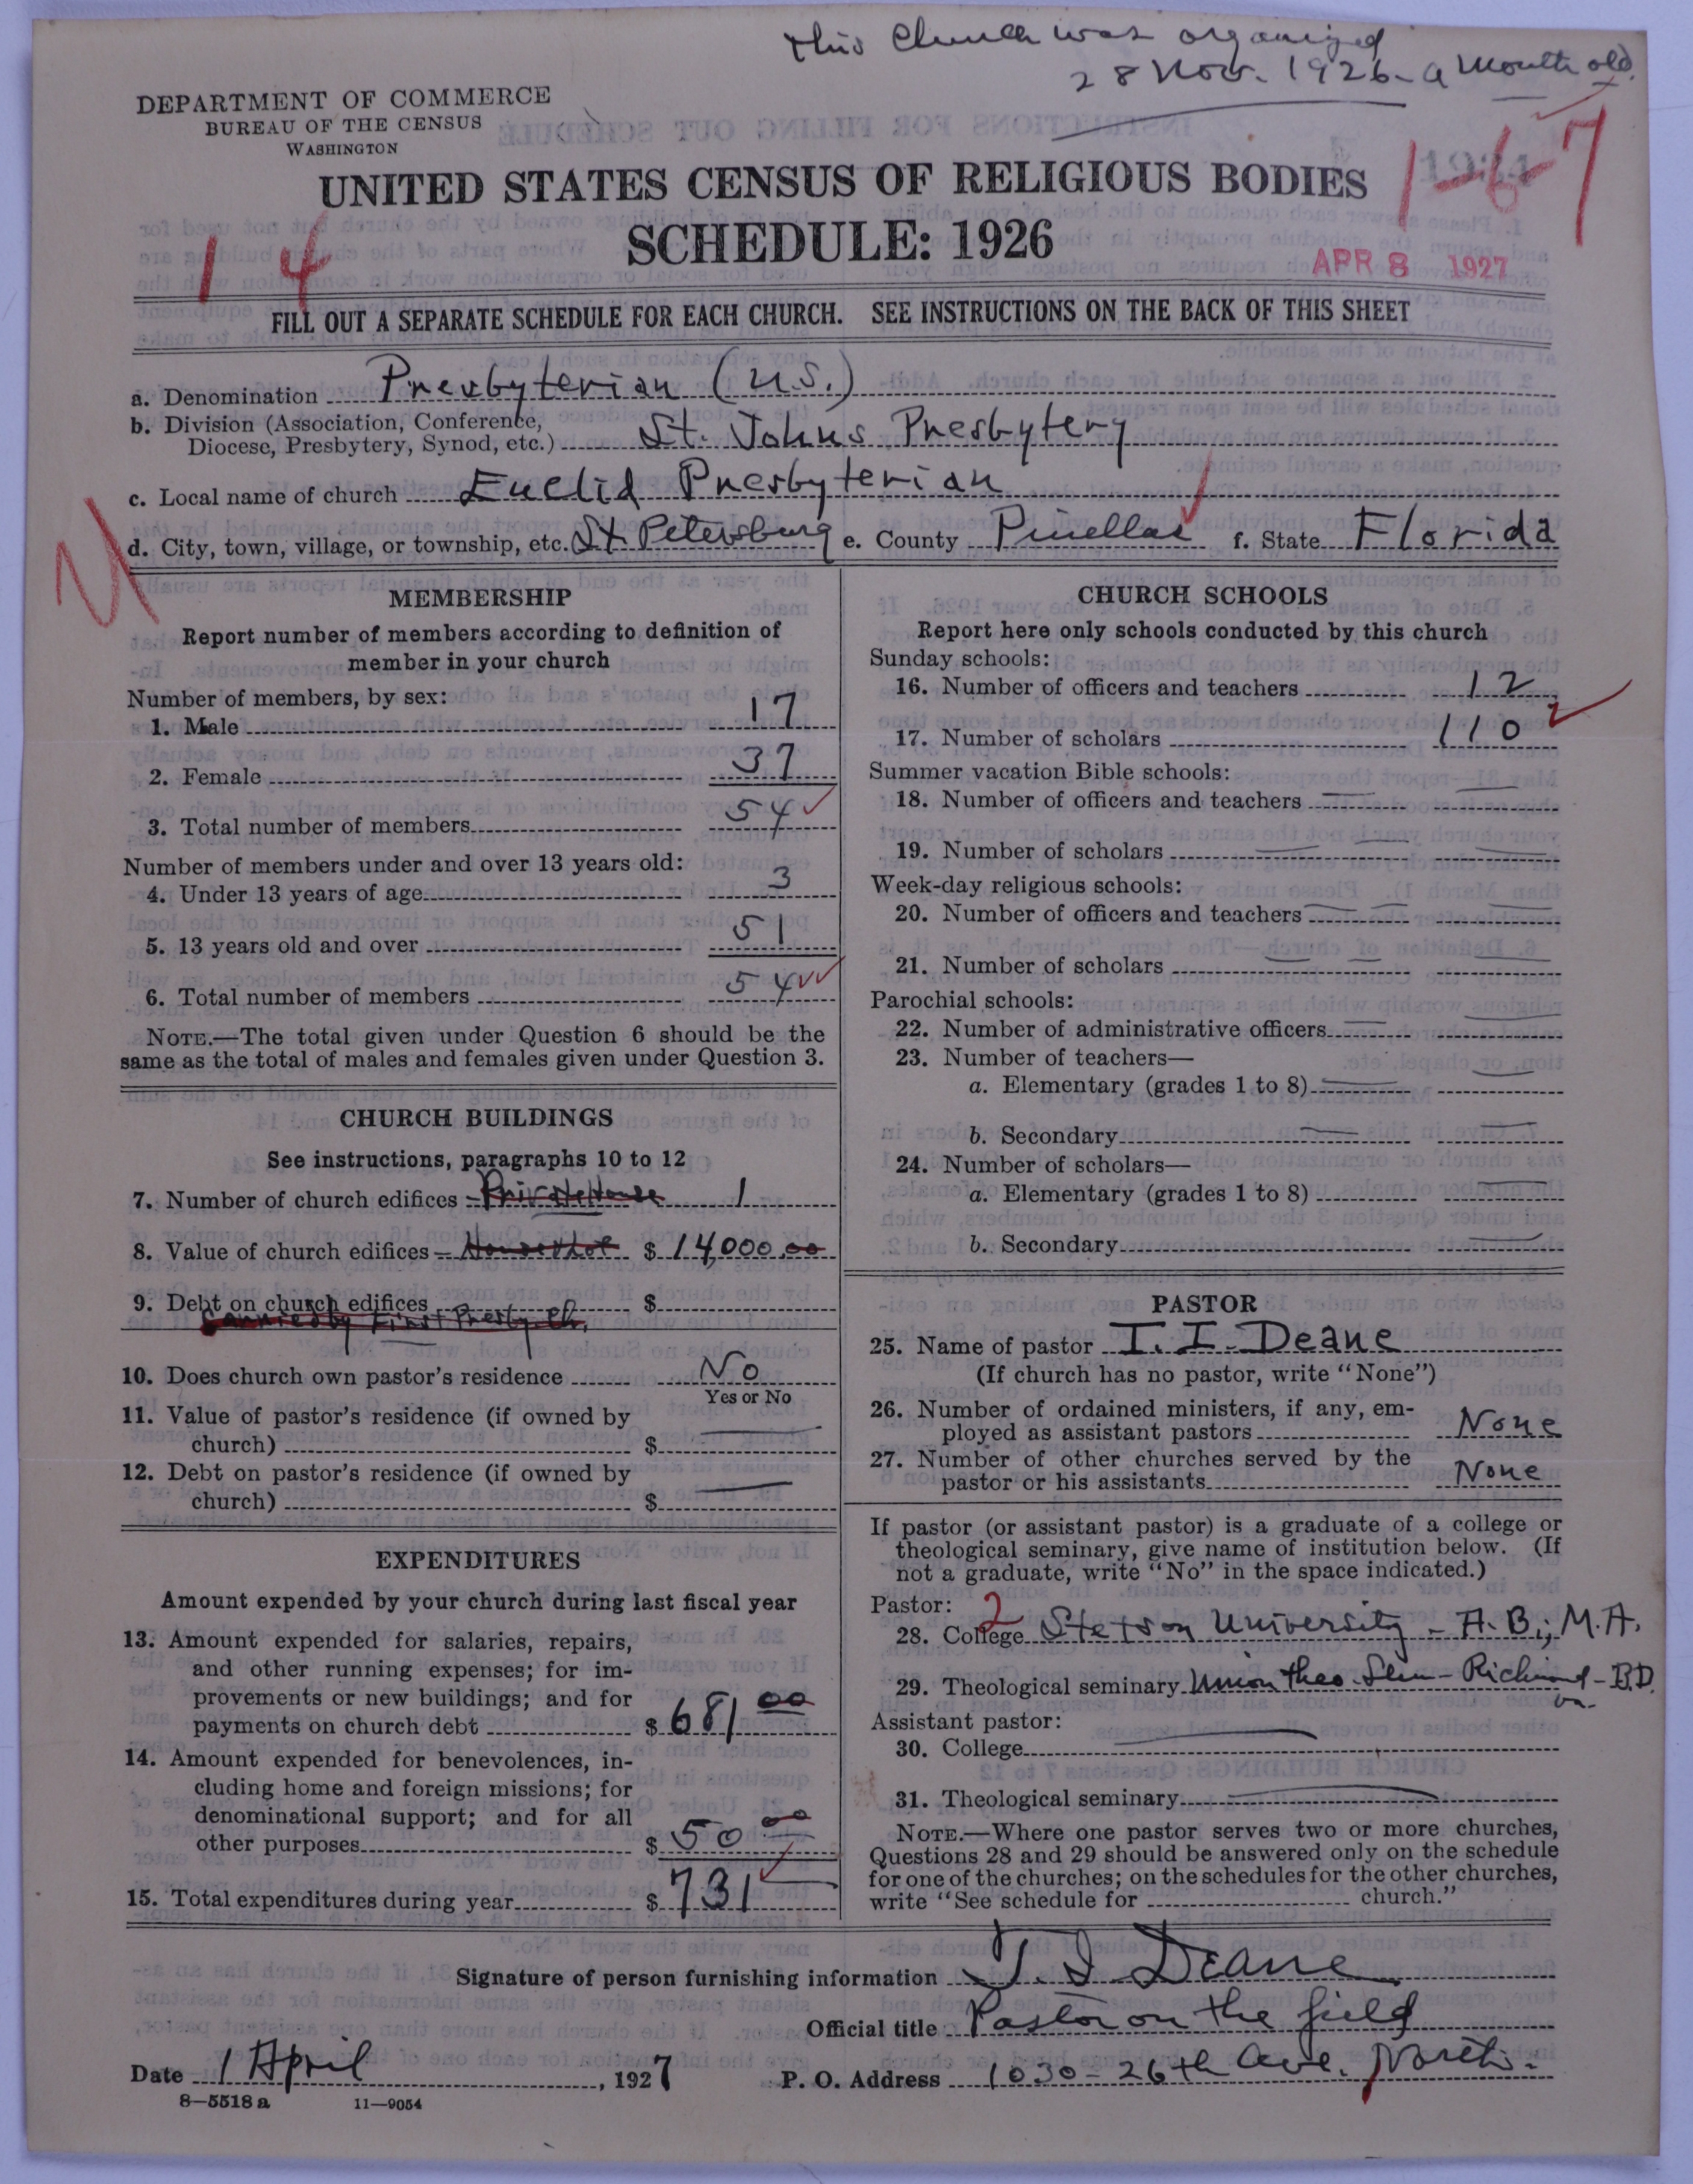 This Church was organized
28 Nov. 1926 - a month old.
DEPARTMENT OF COMMERCE
BUREAU OF THE CENSUS
WASHINGTON
1-6-7
UNITED STATES CENSUS OF RELIGIOUS BODIES
SCHEDULE: 1926
1 4
APR 8 1927
FILL OUT A SEPARATE SCHEDULE FOR EACH CHURCH. SEE INSTRUCTIONS ON THE BACK OF THIS SHEET
a. Denomination Presbyterian (U.S.)
b. Division (Association, Conference,
Diocese, Presbytery, Synod, etc.) St. Johns Presbytery
c. Local name of church Euclid Presbyterian
d. City, town, village, or township, etc. St. Petersburg e. County Pinellas f. State Florida
MEMBERSHIP
Report number of members according to definition of
member in your church
Number of members, by sex:
1. Male 17
2. Female 37
3. Total number of members 54
Number of members under and over 13 years old:
4. Under 13 years of age 3
5. 13 years old and over 51
6. Total number of members 54
NOTE.—The total given under Question 6 should be the
same as the total of males and females given under Question 3.
CHURCH BUILDINGS
See instructions, paragraphs 10 to 12
7. Number of church edifices - Private House 1
8. Value of church edifices - House & Lot $ 14,000.00
9. Debt on church edifices $
Carried by First Presby. Ch.
10. Does church own pastor's residence No
Yes or No
11. Value of pastor's residence (if owned by
church) $
12. Debt on pastor's residence (if owned by
church) $
EXPENDITURES
Amount expended by your church during last fiscal year
13. Amount expended for salaries, repairs,
and other running expenses; for im-
provements or new buildings; and for
payments on church debt $ 681 00
14. Amount expended for benevolences, in-
cluding home and foreign missions; for
denominational support; and for all
other purposes $ 50 00
15. Total expenditures during year $ 731
CHURCH SCHOOLS
Report here only schools conducted by this church
Sunday schools:
16. Number of officers and teachers 12
17. Number of scholars 110
Summer vacation Bible schools:
18. Number of officers and teachers
19. Number of scholars
Week-day religious schools:
20. Number of officers and teachers
21. Number of scholars
Parochial schools:
22. Number of administrative officers
23. Number of teachers—
a. Elementary (grades 1 to 8)
b. Secondary
24. Number of scholars—
a. Elementary (grades 1 to 8)
b. Secondary
PASTOR
25. Name of pastor I. I. Deane
(If church has no pastor, write "None")
26. Number of ordained ministers, if any, em-
ployed as assistant pastors None
27. Number of other churches served by the
pastor or his assistants None
If pastor (or assistant pastor) is a graduate of a college or
theological seminary, give name of institution below. (If
not a graduate, write "No" in the space indicated.)
Pastor: 2
28. College Stetson University - A.B.; M.A.
29. Theological seminary Union Theo. Sem - Richmond - B.D.
Va.
Assistant pastor:
30. College
31. Theological seminary
NOTE.—Where one pastor serves two or more churches,
Questions 28 and 29 should be answered only on the schedule
for one of the churches; on the schedules for the other churches,
write "See schedule for church."
Signature of person furnishing information I. I. Deane
Official title Pastor on the field
Date 1 April, 1927 P. O. Address 1030 - 26th Ave. North.
8—5518 a 11—9054